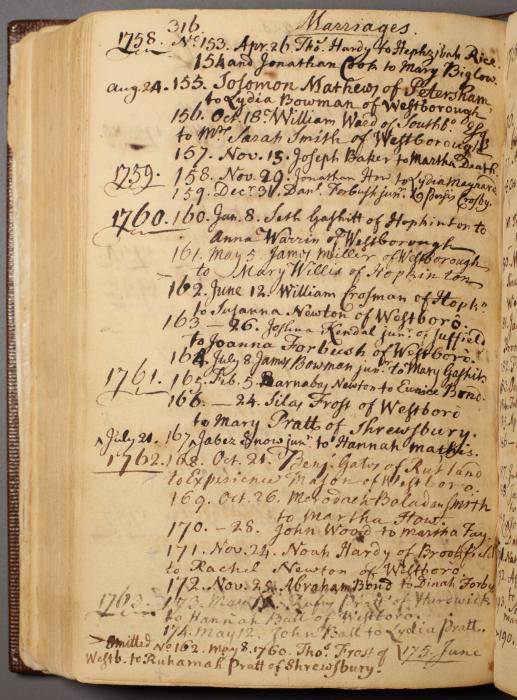 316. Marriages.
1758. No. 153. Apr. 26. Thos. Hardy to Hephzibah Rice.
154 and Jonathan Cook to Mary Biglow.
Aug 24. 155. Solomon Mathews of Petersham,
to Lydia Bowman of Westborough
156. Oct. 18. William Ward of Southbo.
to Mrs. Sarah Smith of Westborough
157. Nov. 15. Joseph Baker to Martha Death.
1759. 158. Nov. 29. Jonathan How to Lydia Maynard
159. Decr. 31. Danl. Forbush junr. to Crosby.
1760. 160. Jan. 8. Seth Gashitt of Hopkinton to
Anna Warrin of Westborough
161. May 5. James Miller of Westborough
to Mary Willis of Hopkinton
162. June 12. William Crosman of Hopkn.
to Susanna Newton of Westboro.
163 - 26. Joshua Kendal junr. of Suffield
to Joanna Forbush of Westboro.
164. July 8. James Bowman junr. to Mary Gashitt
1761. 165. Feb. 5. Barnabas Newton to Eunice Bond.
166. - 24. Silas Frost of Westboro
to Mary Pratt of Shrewsbury.
^ July 21. 167 ^ Jabez Snow junr. to Hannah Mathis.
1762. 168. Oct. 21. Benj. Gates of Rutland
to Experience Mason of Westboro.
169. Oct. 26. Merodach Baladan Smith
to Martha How.
170. - 28. John Wood to Martha Fay
171. Nov. 24. Noah Hardy of Brookfield
to Rachel Newton of Westboro.
172. Nov. 25. Abraham Bond to Dinah Forbu
1763. 173. May Rufus Pratt of Hardwick
to Hannah Ball of Westboro.
174. May 12. John Ball to Lydia Pratt.
> Omitted No. 162. May 8. 1760. Thos. Frost of 175. June
Westb. to Ruhamah Pratt of Shrewsbury.